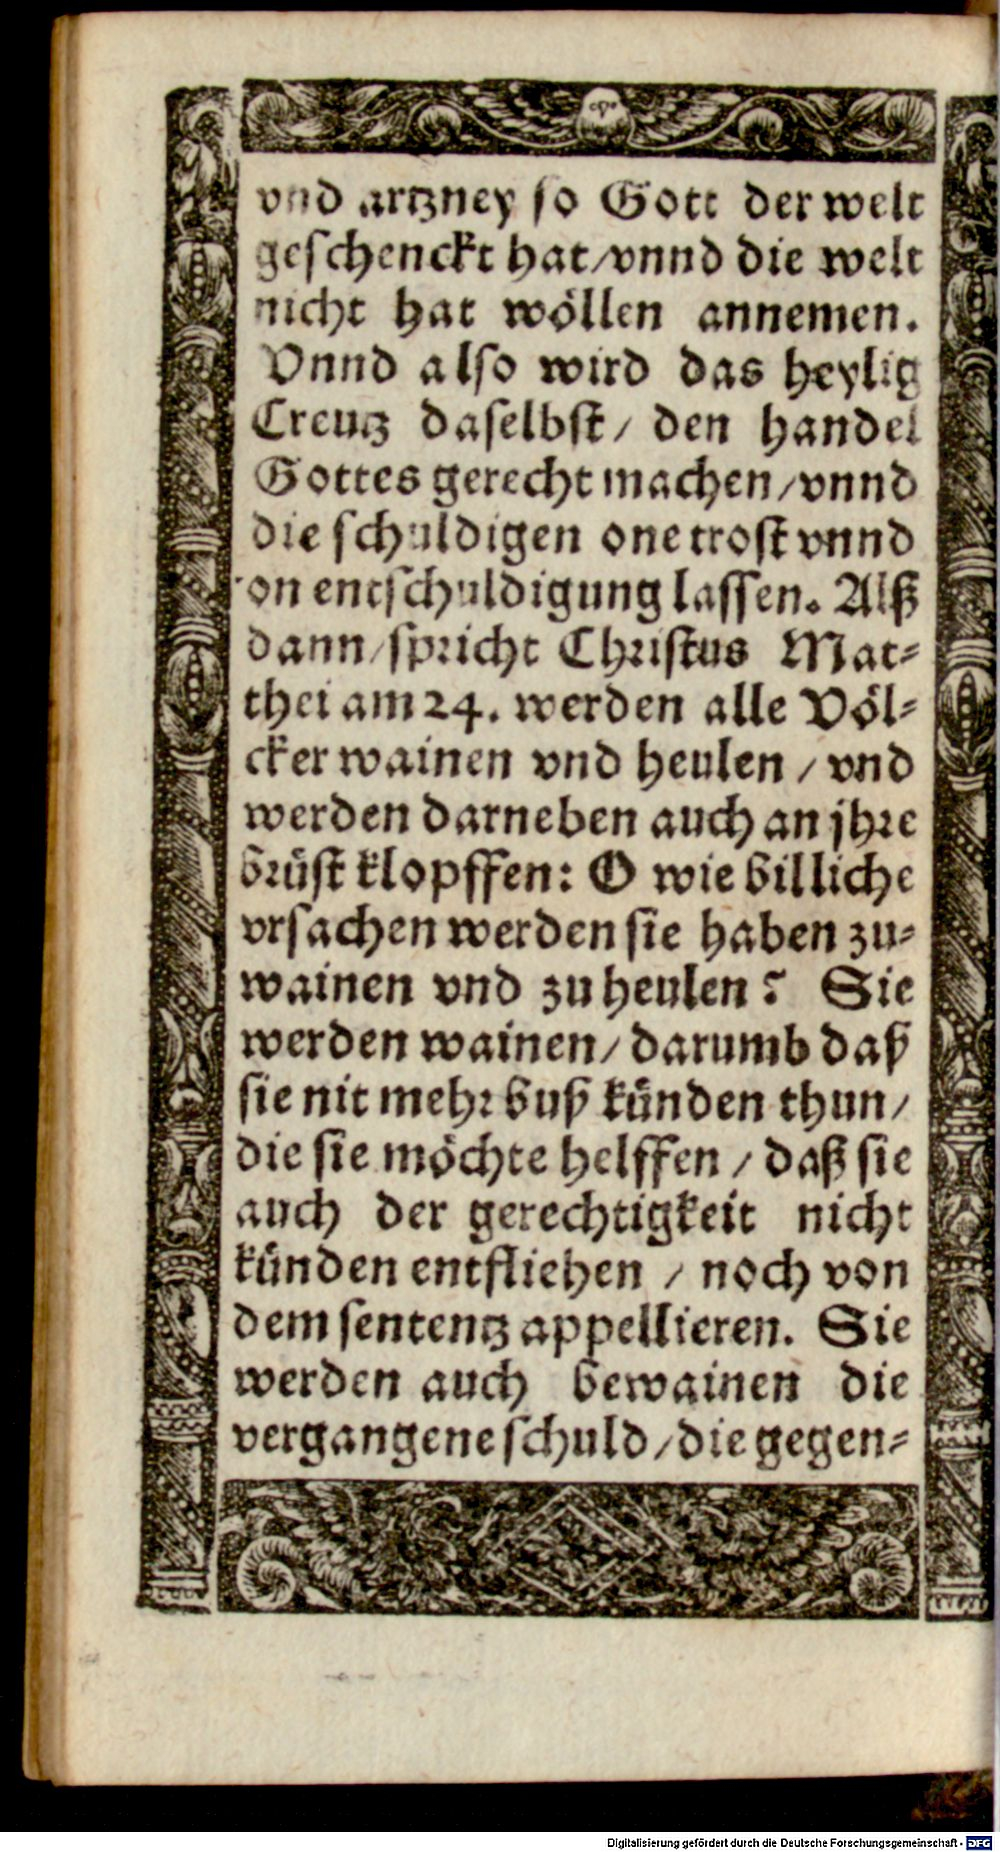 vnd artzney so Gott der welt
geschenckt hat/vnnd die welt
nicht hat wöllen annemen.
Vnnd also wird das heylig
Creutz daselbst/ den handel
Gottes gerecht machen/vnnd
die schuldigen one trost vnnd
on entschuldigung lassen. Alß
dann/spricht Christus Mat-
thei am 24. werden alle Völ-
cker wainen vnd heulen/ vnd
werden darneben auch an jhre
brüst klopffen: O wie billiche
vrsachen werden sie haben zu-
wainen vnd zu heulen? Sie
werden wainen/ darumb daß
sie nit mehr buß künden thun/
die sie möchte helffen/ daß sie
auch der gerechtigkeit nicht
künden entfliehen/ noch von
dem sententz appellieren. Sie
werden auch bewainen die
vergangene schuld/die gegen-
Digitalisierung gefördert durch die Deutsche Forschungsgemeinschaft - DFG